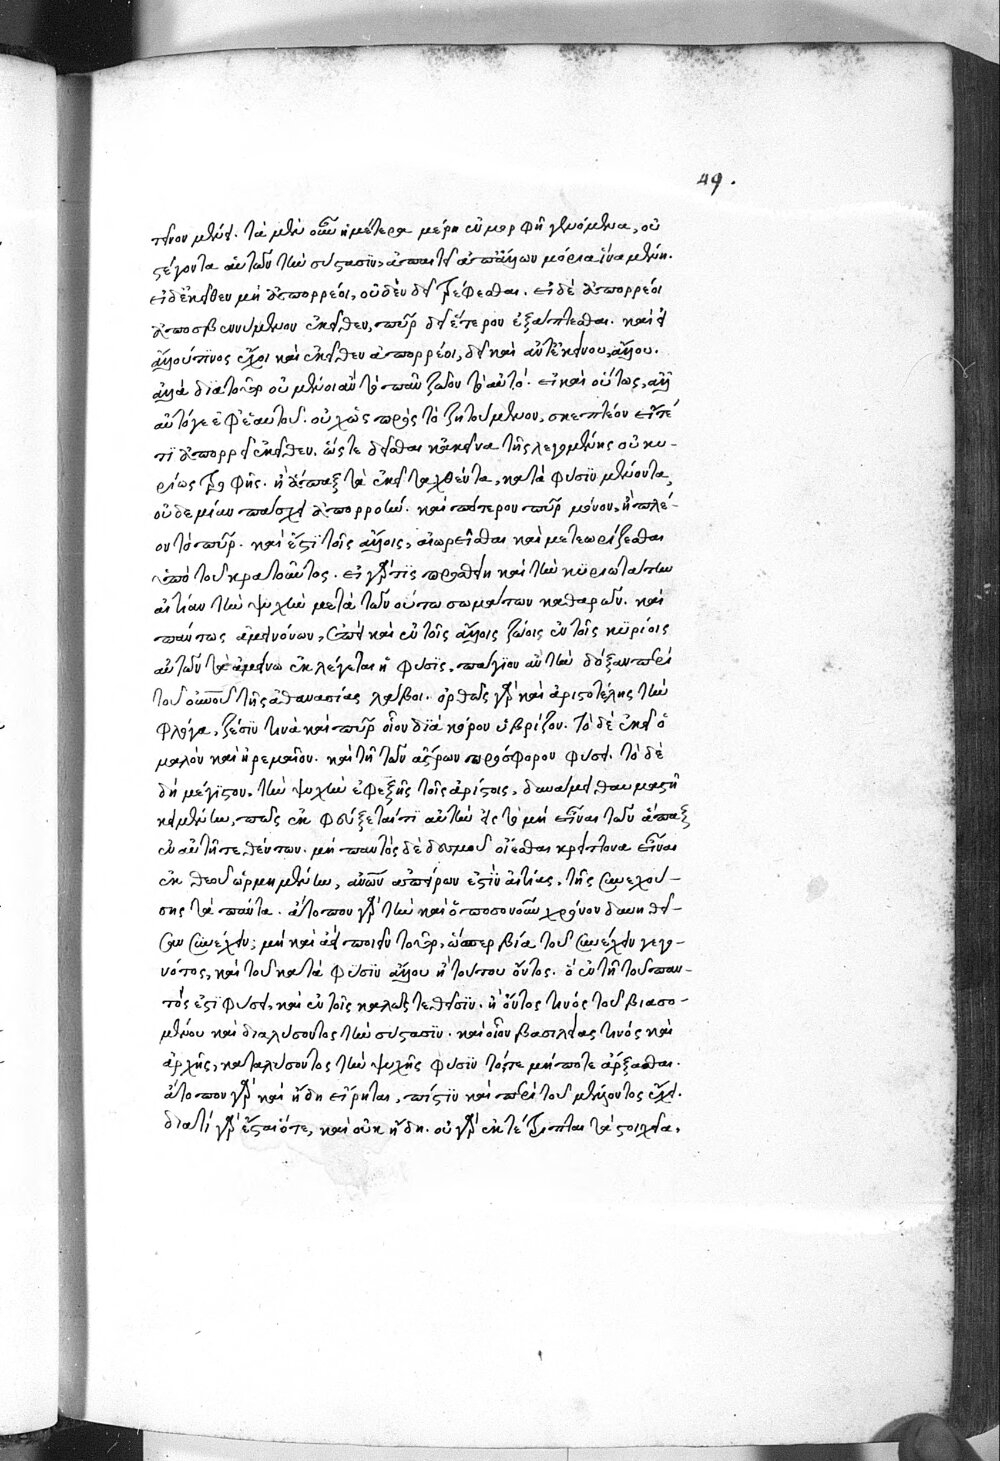 49.
πύρινον μένει. τὰ μὲν οὖν ἡμέτερα μέρη ἐν μορφῇ γενόμενα, οὐ
στέγοντα αὐτῶν τὴν σύστασιν, ἀπαιτεῖ ἀπ' ἄλλων μόρια ἵνα μένῃ.
εἰ δ' ἐκεῖθεν μὴ ἀπορρέοι, οὐδὲν δεῖ τρέφεσθαι. εἰ δὲ ἀπορρέοι
ἀποσβεννύμενον ἐκεῖθεν, πῦρ δεῖ ἕτερον ἐξάπτεσθαι. καὶ εἰ
ἄλλου τινος ἔχοι καὶ ἐκεῖθεν ἀπορρέοι, δεῖ καὶ ἀντ' ἐκείνου, ἄλλου.
ἀλλὰ διὰ τοῦτο οὐ μένοι ἂν τὸ πᾶν ζῷον τὸ αὐτό. εἰ καὶ οὕτως, ἀλλ'
αὐτό γε ἐφ' ἑαυτοῦ. οὐχ ὡς πρὸς τὸ ζητούμενον, σκεπτέον εἴτε
τι ἀπορρεῖ ἐκεῖθεν. ὥστε δεῖσθαι κἀκεῖνα τῆς λεγομένης οὐ κυ-
ρίως τροφῆς. ἢ ἅπαξ τὰ ἐκεῖ ταχθέντα, κατὰ φύσιν μένοντα,
οὐδεμίαν πάσχει ἀπορροήν. καὶ πότερον πῦρ μόνον, ἢ πλέ-
ον τὸ πῦρ. καὶ ἔστι τοῖς ἄλλοις, αἰωρεῖσθαι καὶ μετεωρίζεσθαι
ὑπὸ τοῦ κρατοῦντος. εἰ γάρ τις προσθείη καὶ τὴν κυριωτάτην
αἰτίαν τὴν ψυχὴν μετὰ τῶν οὕτω σωμάτων καθαρῶν. καὶ
πάντως ἀμεινόνων, ἐπεὶ καὶ ἐν τοῖς ἄλλοις ζώοις ἐν τοῖς κυρίοις
αὐτῶν τὰ ἀμείνω ἐκλέγεται ἡ φύσις, πάγιον ἂν τὴν δόξαν περὶ
τοῦ οὐρανοῦ τῆς ἀθανασίας λάβοι. ὀρθῶς γὰρ καὶ ἀριστοτέλης τὴν
φλόγα, ζέσιν τινὰ καὶ πῦρ οἷον διὰ κόρον ὑβρίζον. τὸ δὲ ἐκεῖ ὁ
μαλὸν καὶ ἠρεμαῖον. καὶ τῇ τῶν ἄστρων πρόσφορον φύσει. τὸ δὲ
δὴ μέγιστον, τὴν ψυχὴν ἐφεξῆς τοῖς ἀρίστοις, δυνάμει θαυμαστῇ
κειμένην, πῶς ἐκφεύξεταί τι αὐτὴν εἰς τὸ μὴ εἶναι τῶν ἅπαξ
ἐν αὐτῇ τεθέντων. μὴ παντὸς δὲ δεσμοῦ οἴεσθαι κρείττονα εἶναι
ἐκ θεοῦ ὡρμημένην, ἀνθρώπων ἀπείρων ἐστὶν αἰτίας, τῆς συνεχού-
σης τὰ πάντα. ἄτοπον γὰρ τὴν καὶ ὁποσονοῦν χρόνον δυνηθεῖ-
σαν συνέχειν, μὴ καὶ ἀεὶ ποιεῖν τοῦτο, ὥσπερ βίᾳ τοῦ συνέχειν γεγο-
νότος, καὶ τοῦ κατὰ φύσιν ἄλλου ἢ τούτου ὄντος. ὃ ἐν τῇ τοῦ παν-
τός ἐστι φύσει, καὶ ἐν τοῖς καλῶς τεθεῖσιν. ἢ ὄντος τινὸς τοῦ βιασο-
μένου καὶ διαλύσοντος τὴν σύστασιν. καὶ οἷον βασιλείας τινὸς καὶ
ἀρχῆς, καταλύσοντος τὴν ψυχῆς φύσιν τό,τε μήποτε ἄρξασθαι.
ἄτοπον γὰρ καὶ ἤδη εἴρηται, πίστιν καὶ περὶ τοῦ μέλλοντος ἔχει.
διατί γὰρ ἔσται ὅτε, καὶ οὐκ ἤδη. οὐ γὰρ ἐκτέτριπται τὰ στοιχεῖα,